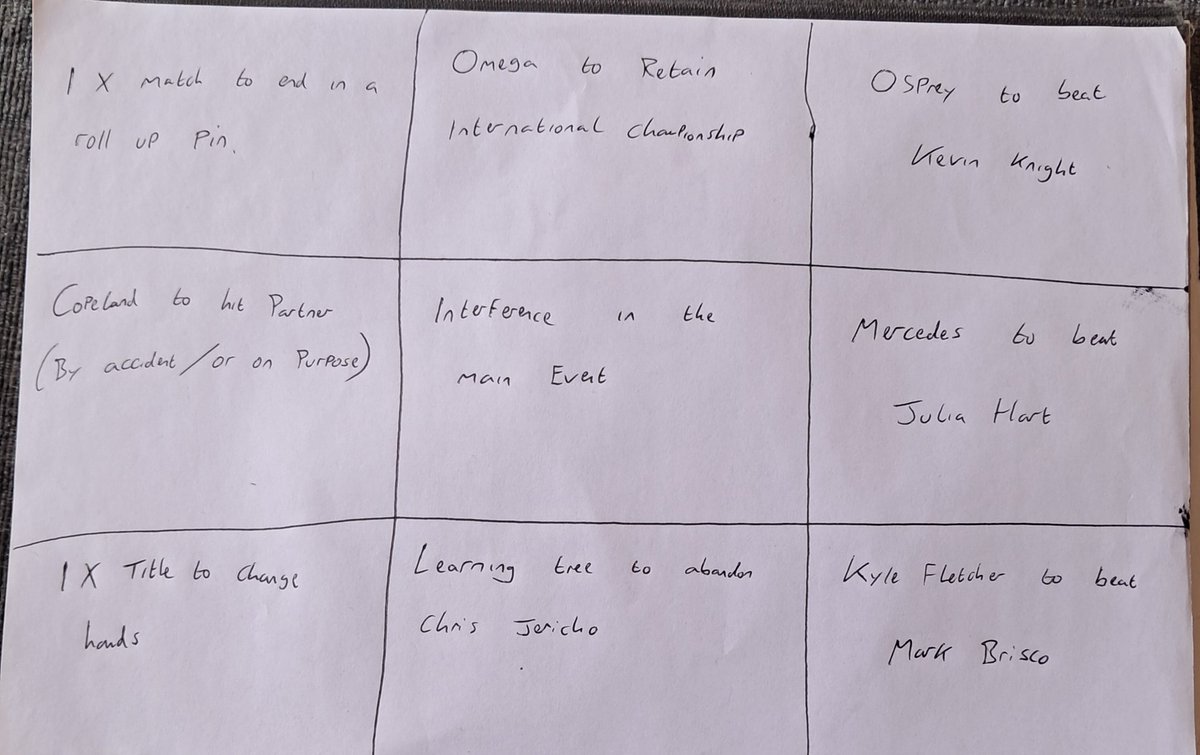 1 X match to end in a
roll up Pin.
Omega to Retain
International Championship
OSPrey to beat
Kevin Knight
Copeland to hit Partner
(By accident/or on Purpose)
Interference in the
main Event
Mercedes to beat
Julia Hart
1 X Title to Change
hands
Learning tree to abandon
Chris Jericho
Kyle Fletcher to beat
Mark Brisco